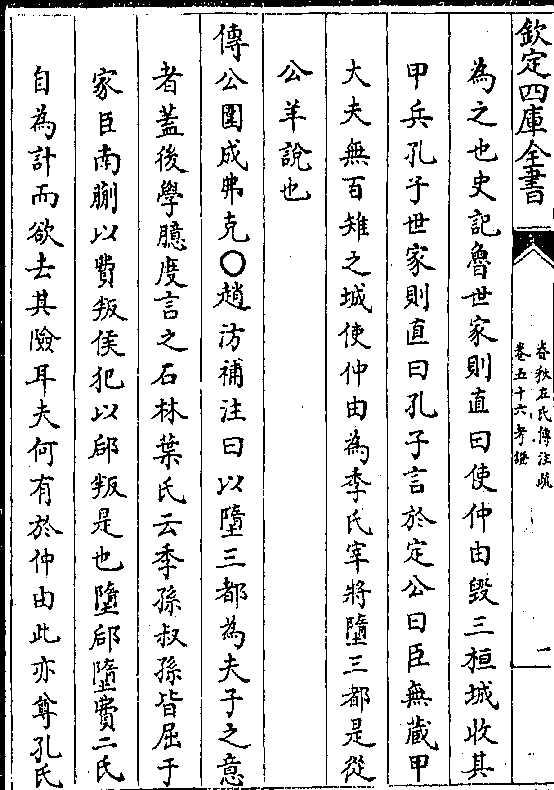 欽定四庫全書
春秋左氏傳注疏
卷五十六考證
一
為之也史記魯世家則直曰使仲由毀三桓城收其
甲兵孔子世家則直曰孔子言於定公曰臣無藏甲
大夫無百雉之城使仲由為季氏宰將墮三都是從
公羊說也
傳公圍成弗克〇趙汸補注曰以墮三都為夫子之意
者蓋後學臆度言之石林葉氏云季孫叔孫皆屈于
家臣南蒯以費叛侯犯以郈叛是也墮郈墮費二氏
自為計而欲去其險耳夫何有於仲由此亦尊孔氏